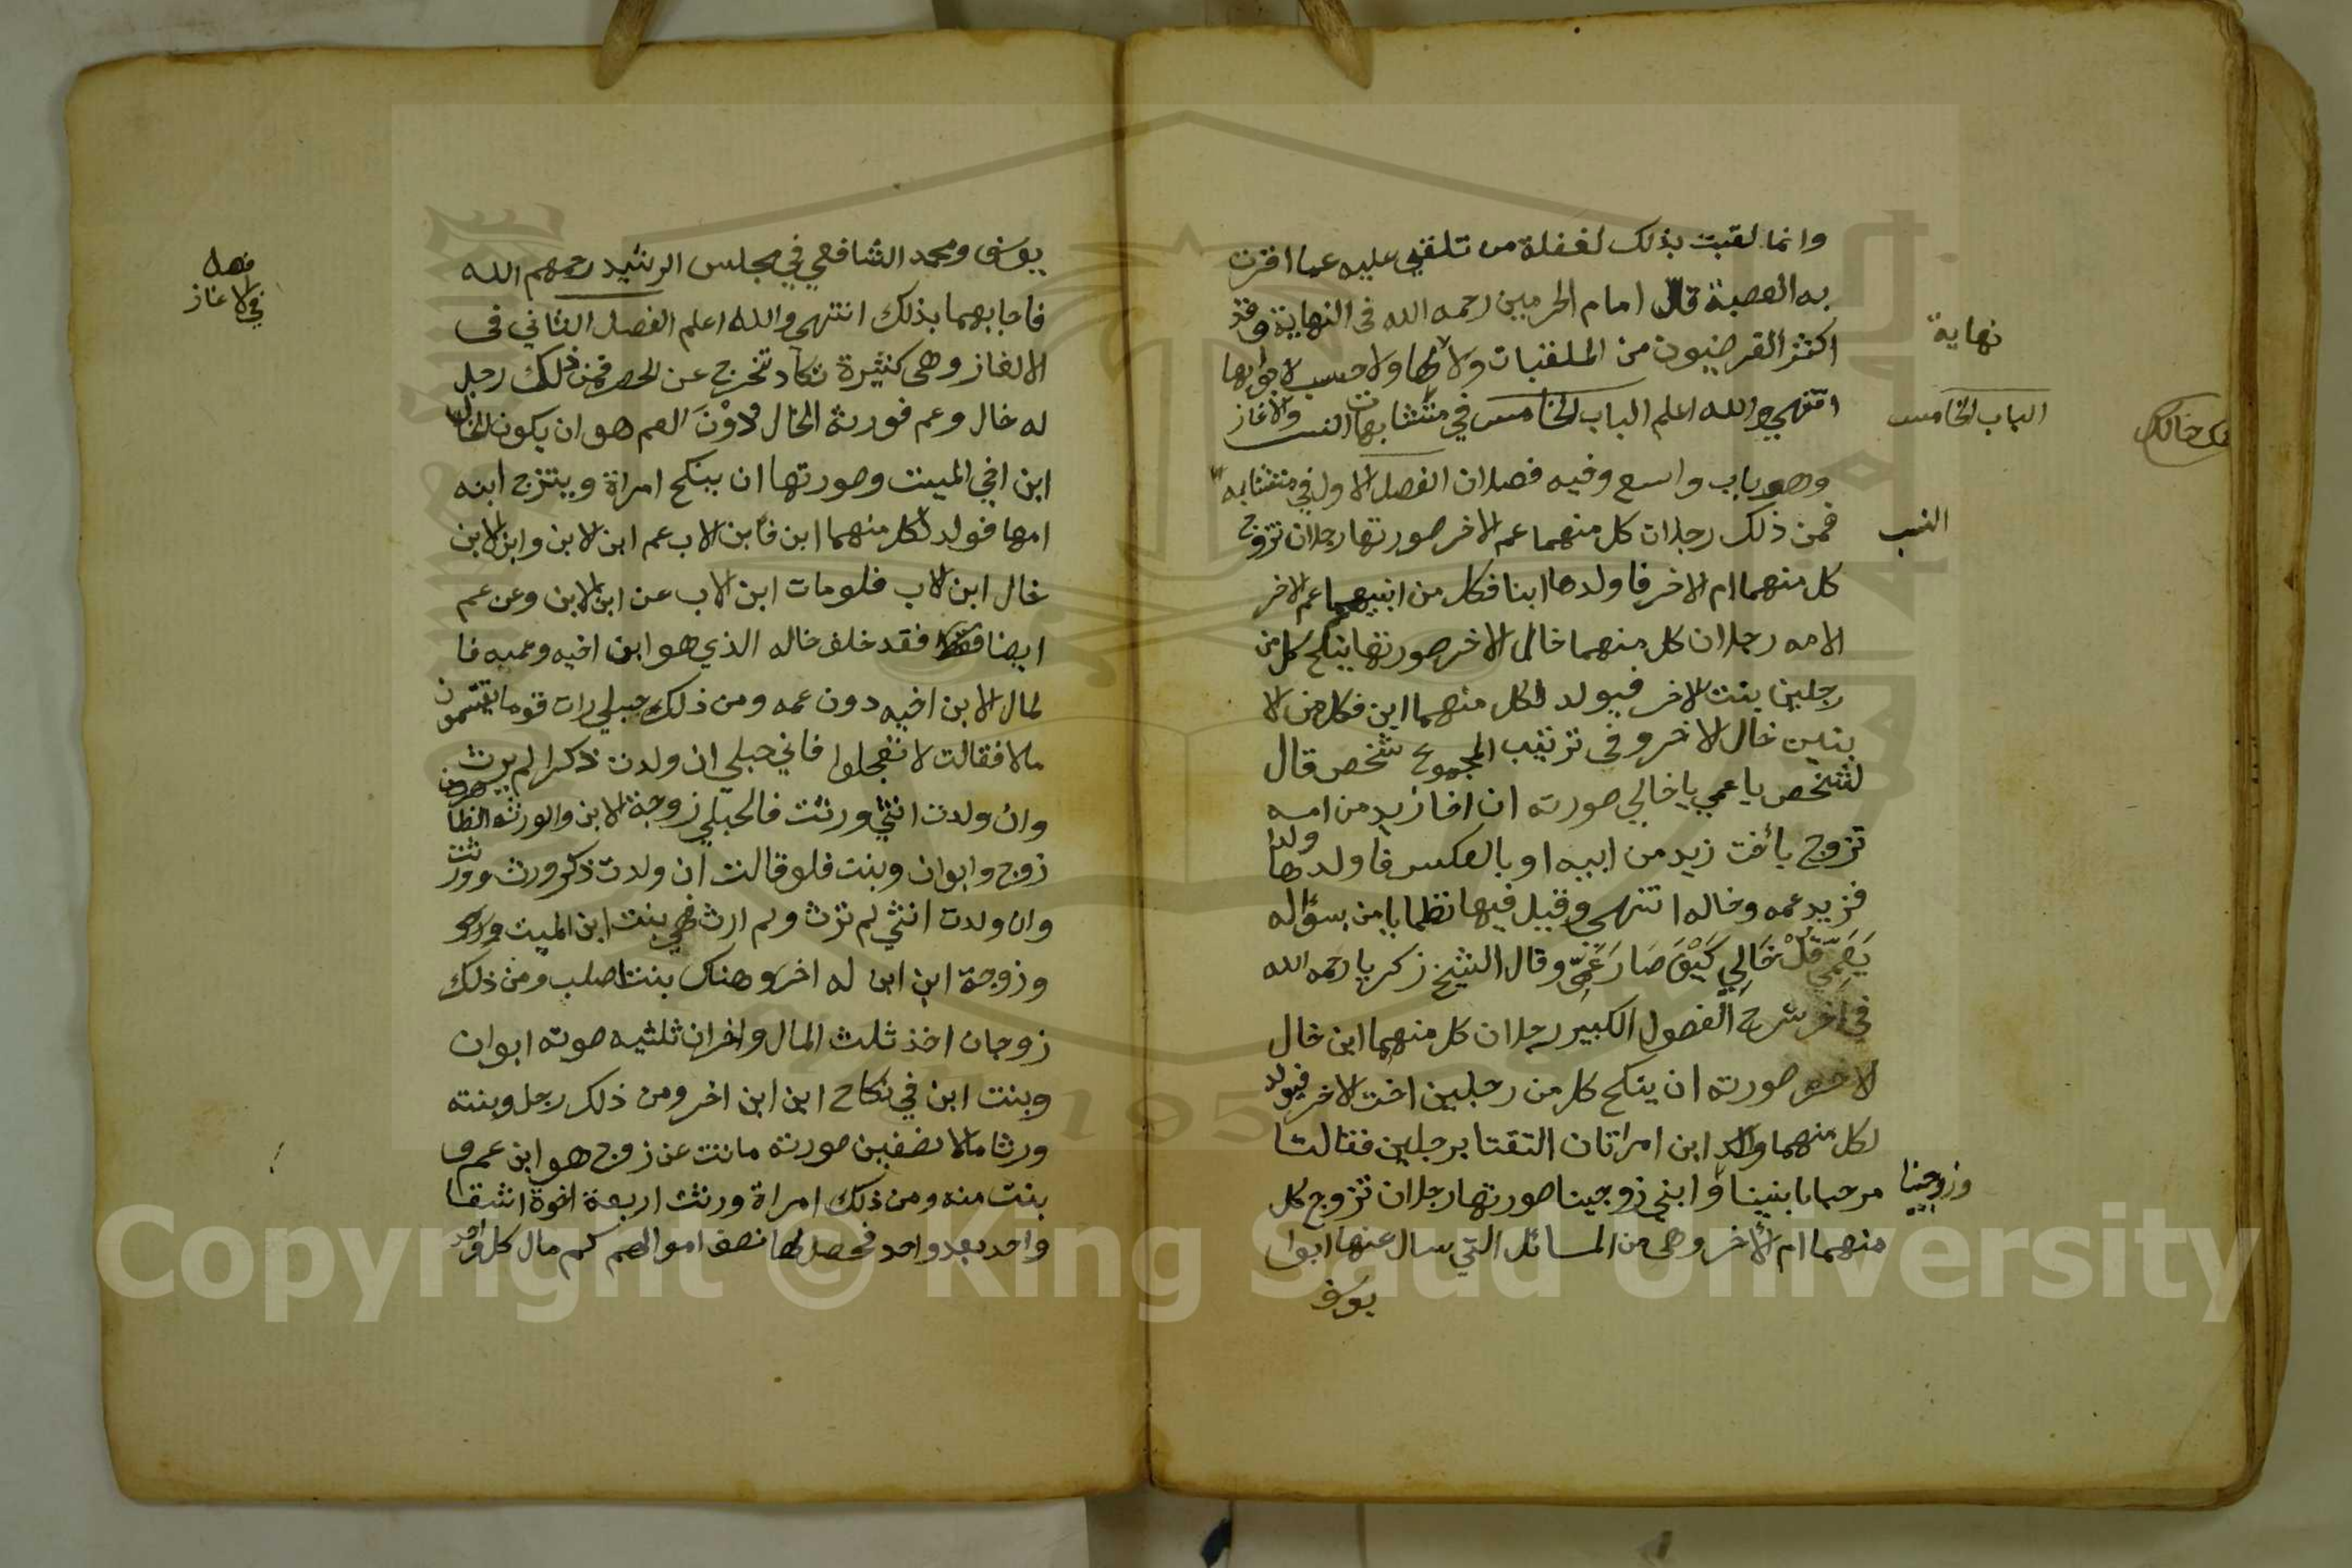 وانما لقبت بذلك لغفلة من تلقي عليه عما اقرت
به العصبة قال امام الحرمين رحمه الله فى النهاية وقد
اكثر الفرضيون من الملقبات ولا نهاية لها ولا حسب لابوابها
انتهى والله اعلم الباب الخامس في متشابهات النسب والالغاز
وهو باب واسع وفيه فصلان الفصل الاول في متشابه
النسب
فمن ذلك رجلان كل منهما عم الاخر صورتها رجلان تزوج
كل منهما ام الاخر فاولدها ابنا فكل من ابنيهما عم الاخر
لامه رجلان كل منهما خال الاخر صورتها ينكح كل من
رجلين بنت الاخر فيولد لكل منهما ابن فكل من الا
بنين خال الاخر وفى ترتيب المجموع شخص قال
لشخص يا عمي يا خالي صورته ان اخا زيد من امه
تزوج بأخت زيد من ابيه او بالعكس فاولدها ولدا
فزيد عمه وخاله انتهى وقيل فيها نظما يا من بسؤاله
يَعَمِّي قُلْ خَالِي كَيْفَ صَارَ عَمِّي وقال الشيخ زكريا رحمه الله
في اخر شرح الفصول الكبير رجلان كل منهما ابن خال
الاخر صورته ان ينكح كل من رجلين اخت الاخر فيولد
لكل منهما ابن امراتان التقتا برجلين فقالتا
مرحبا بابنينا وزوجينا وابني زوجينا صورتها رجلان تزوج كل
منهما ام الأخر وهي من المسائل التي سال عنها ابوا
يوسف
نهاية
الباب الخامس
يوسف ومحمد الشافعي في مجلس الرشيد رحمهم الله
فاجابهما بذلك انتهى والله اعلم الفصل الثاني فى
الالغاز وهى كثيرة تكاد تخرج عن الحصر فمن ذلك رجل
له خال وعم فورثه الخال دُوْنَ العم هو ان يكون الخال
ابن اخي الميت وصورتها ان ينكح امراة ويتزوج ابنه
امها فولد لكل منهما ابن فابن الاب عم ابن الابن وابن الابن
خال ابن الاب فلو مات ابن الاب عن ابن الابن وعن عم
ايضا فقد خلف خاله الذي هو ابن اخيه وعمه فا
لمال لابن اخيه دون عمه ومن ذلك حبلى رات قوما يقتسمون
مالا فقالت لا تعجلوا فاني حبلي ان ولدت ذكرا لم يرث
وان ولدت انثي ورثت فالحبلي زوجة الابن والورثه الظاهرون
زوج وابوان وبنت فلو قالت ان ولدت ذكر ورث وورثت
وان ولدت انثي لم ترث ولم ارث فهي بنت ابن الميت
وزوجة ابن ابن له اخر وهناك بنتا صلب ومن ذلك
زوجان اخذ ثلث المال واخران ثلثيه صورته ابوان
وبنت ابن في نكاح ابن ابن اخر ومن ذلك رجل وبنته
ورثا مالا نصفين صورته ماتت عن زوج هو ابن عم و
بنت منه ومن ذلك امراة ورثت اربعة اخوة اشقا
واحد بعد واحد فحصل لها نصف اموالهم كم مال كل واحد
فصل
في الالغاز